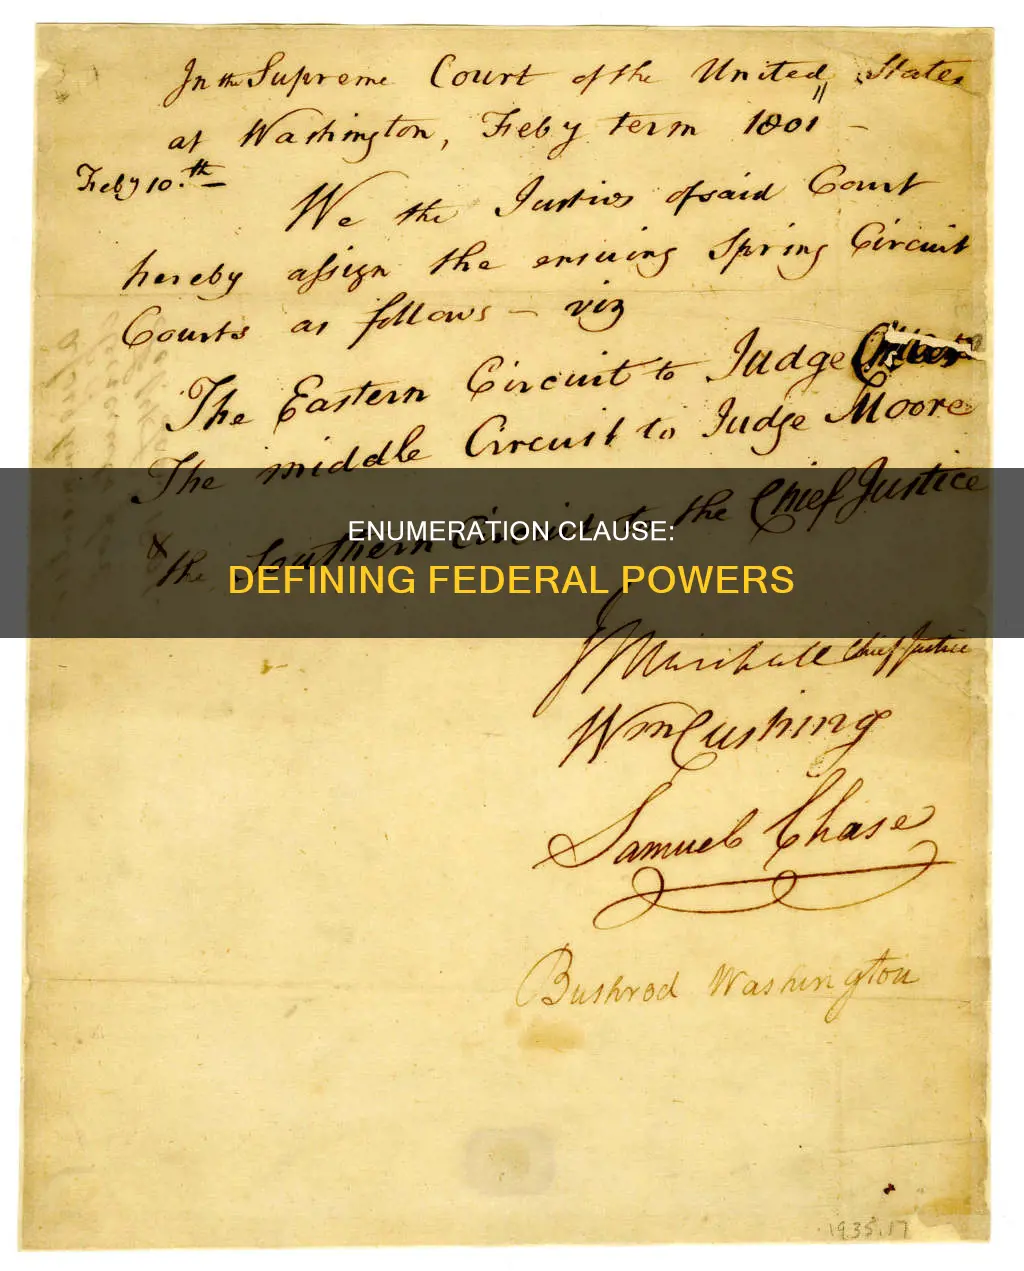 In the Supreme Court of the United States
at Washington, Feby term 1801 —
Feby 10.th —
We the Justices of said Court
hereby assign the ensuing Spring Circuit
Courts as follows — viz
The Eastern Circuit to Judge
The middle Circuit to Judge Moore
& the Southern Circuit to the Chief Justice
ENUMERATION CLAUSE:
DEFINING FEDERAL POWERS
J Marshall Chief Justice
Wm Cushing
Samuel Chase
Bushrod Washington
1935.17